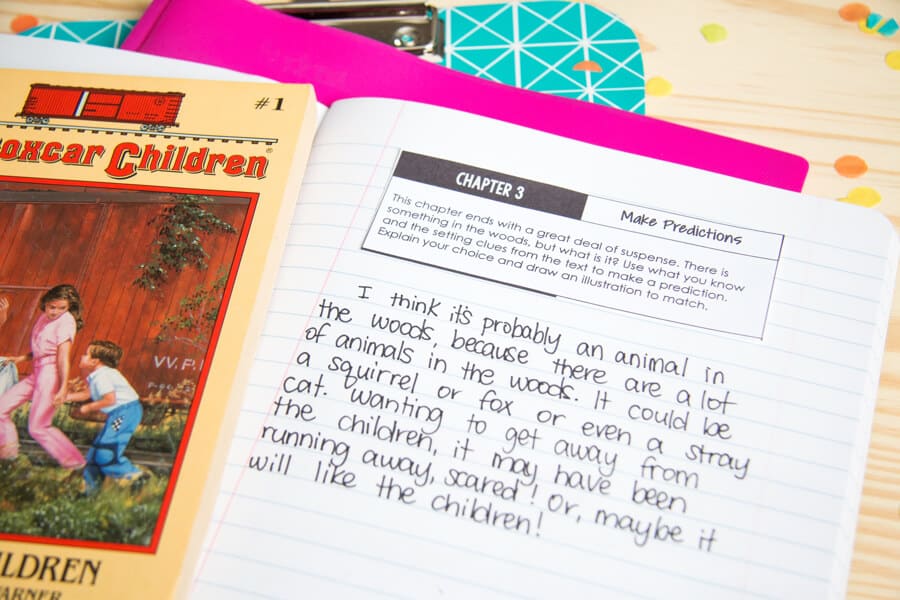 #1
oxcar Children®
W.F.
LDREN
ARNER
CHAPTER 3
Make Predictions
This chapter ends with a great deal of suspense. There is
something in the woods, but what is it? Use what you know
and the setting clues from the text to make a prediction.
Explain your choice and draw an illustration to match.
I think it's probably an animal in
the woods, because there are a lot
of animals in the woods. It could be
a squirrel or fox or even a stray
cat. Wanting to get away from
the children, it may have been
running away, scared! Or, maybe it
will like the children!